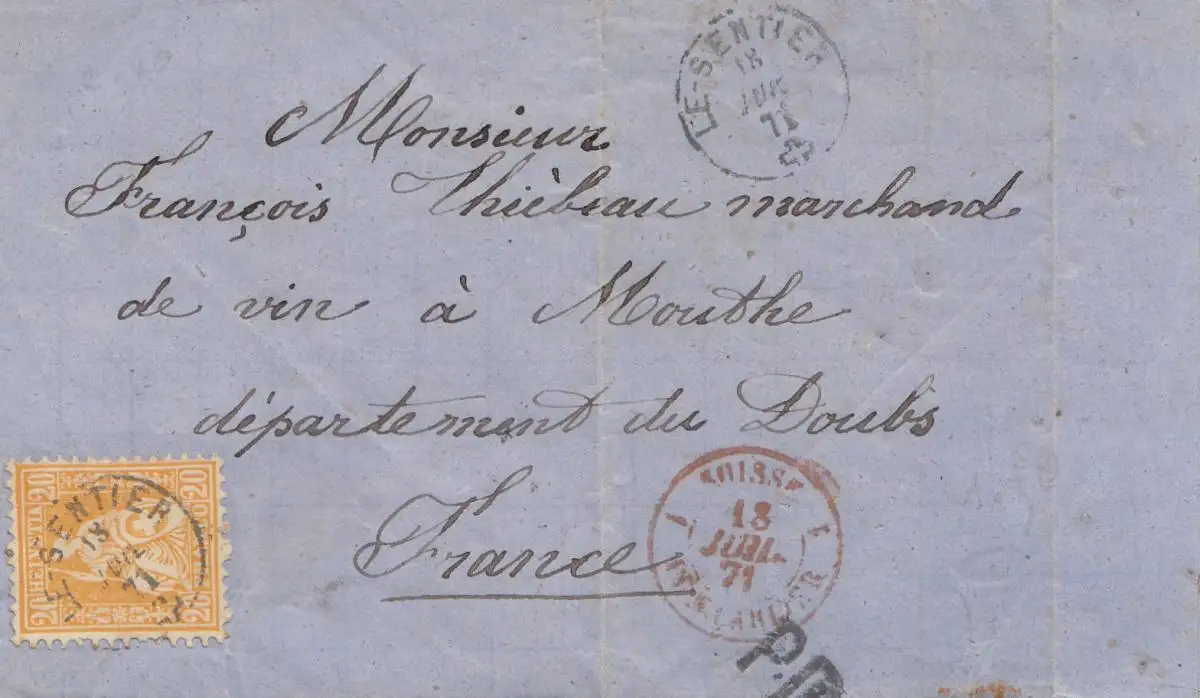 LE-SENTIER
18
JUIL
71
Monsieur
François Thièbeau marchand
de vin à Mouthe
département du Doubs
France
20 HELVETIA 20
20 20
LE-SENTIER
18
JUIL
71
SUISSE
18
JUIL.
71
PONTARLIER
P.D